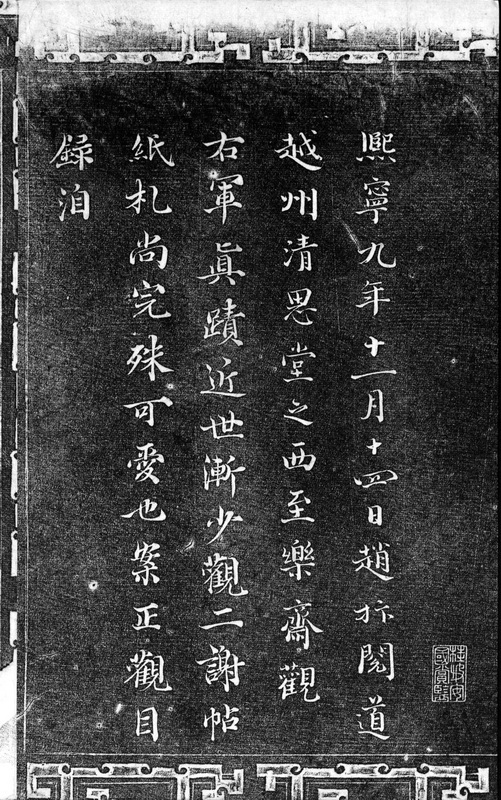 熙寧九年十一月十四日趙抃閱道
越州清思堂之西至樂齋觀
右軍眞蹟近世漸少觀二謝帖
紙札尚完殊可愛也案正觀目
録洎